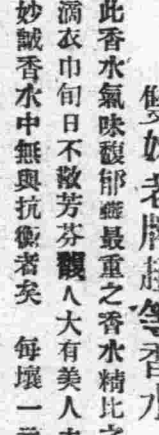 雙妹老牌超等香水
此香水氣味馥郁為最重之香水精比之
滴衣巾旬日不散芳芬襲人大有美人
妙誠香水中無與抗衡者矣 每壜一元